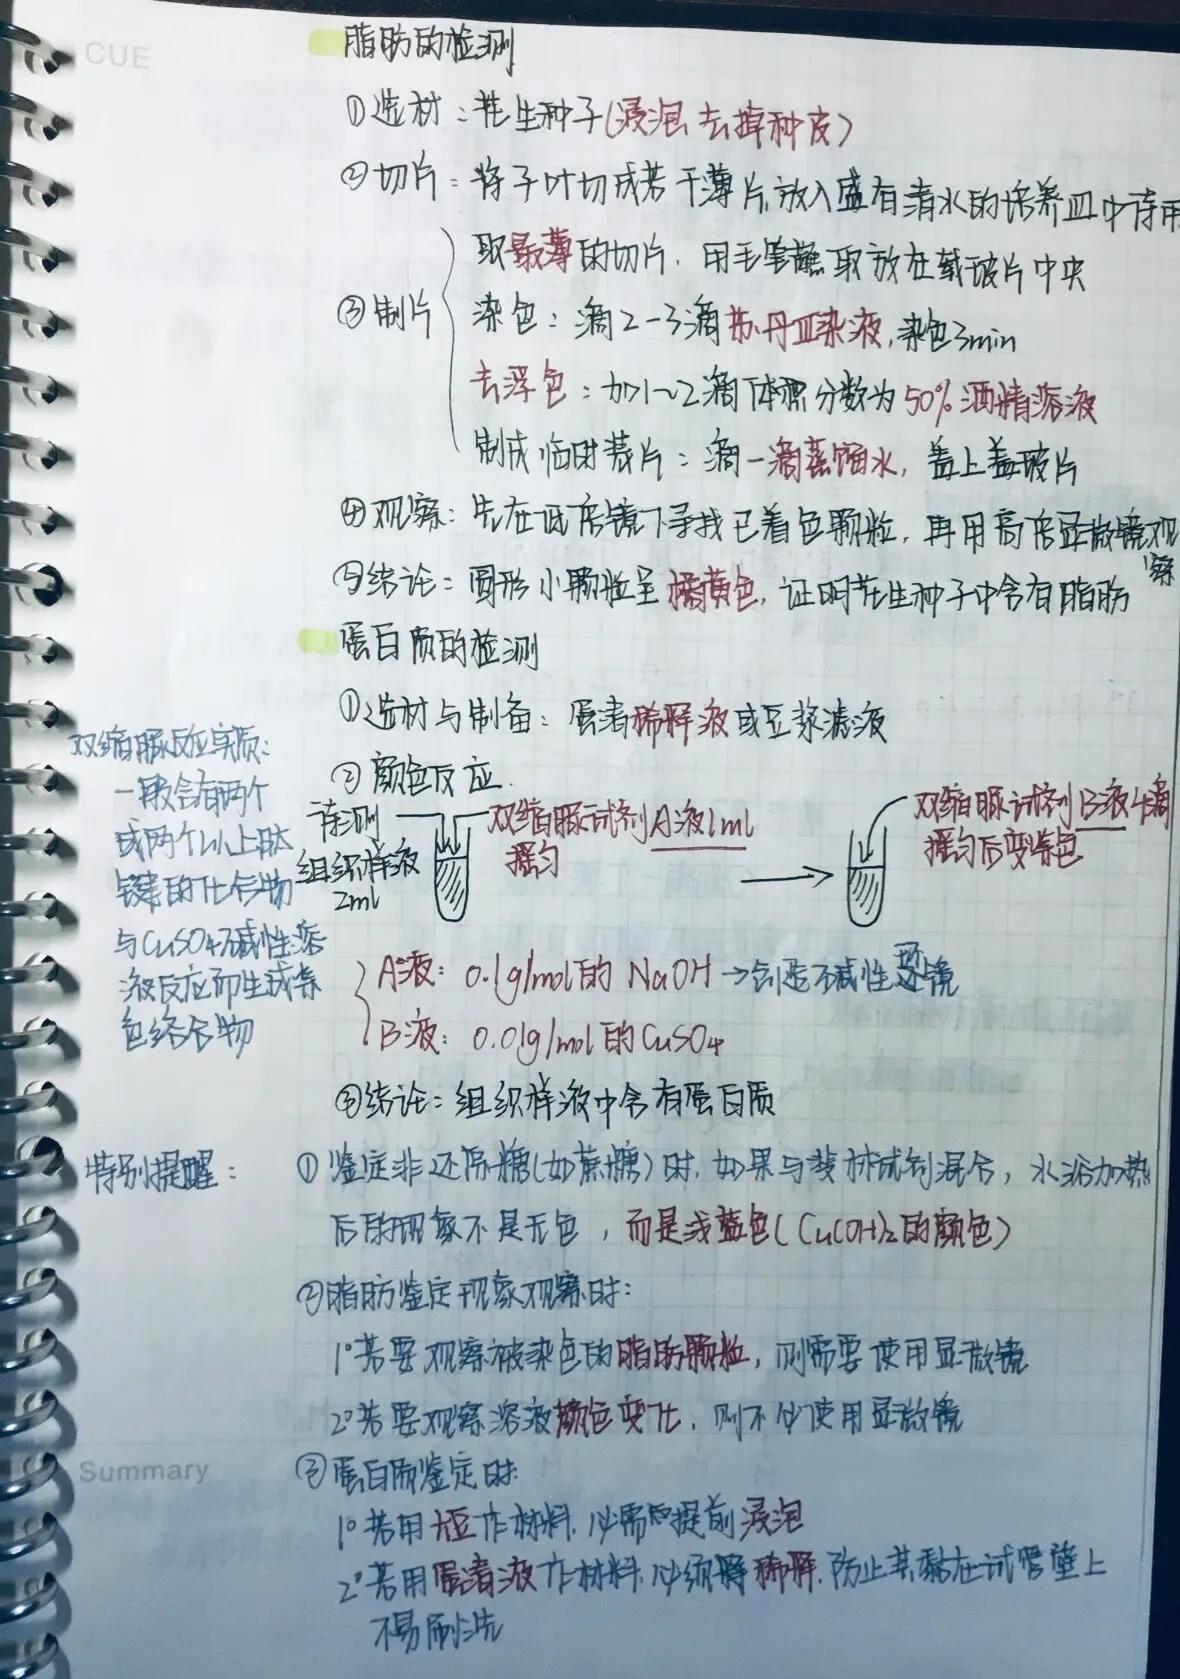 CUE
脂肪的检测
①选材：花生种子(浸泡 去掉种皮)
②切片：将子叶切成若干薄片,放入盛有清水的培养皿中待用
取最薄的切片,用毛笔蘸取放在载玻片中央
③制片
染色：滴2-3滴苏丹Ⅲ染液,染色3min
去浮色：加1~2滴体积分数为50%酒精溶液
制成临时装片：滴一滴蒸馏水,盖上盖玻片
④观察：先在低倍镜下寻找已着色颗粒,再用高倍显微镜观察
⑤结论：圆形小颗粒呈橘黄色,证明花生种子中含有脂肪
蛋白质的检测
①选材与制备：蛋清稀释液或豆浆滤液
②颜色反应.
待测
组织样液
2ml
双缩脲试剂A液1ml
摇匀
双缩脲试剂B液4滴
摇匀后变紫色
A液：0.1g/mol的NaOH→创造碱性环境
B液：0.01g/mol的CuSO4
③结论：组织样液中含有蛋白质
双缩脲反应实质：
一般含有两个
或两个以上肽
键的化合物
与CuSO4碱性溶
液反应而生成紫
色络合物
特别提醒：
①鉴定非还原糖(如蔗糖)时,如果与斐林试剂混合,水浴加热
后的现象不是无色,而是浅蓝色(Cu(OH)2的颜色)
②脂肪鉴定现象观察时：
1°若要观察被染色的脂肪颗粒,则需要使用显微镜
2°若要观察溶液颜色变化,则不必使用显微镜
Summary
③蛋白质鉴定时：
1°若用大豆作材料,必需提前浸泡
2°若用蛋清液作材料,必须稀释,防止其黏在试管壁上
不易刷洗